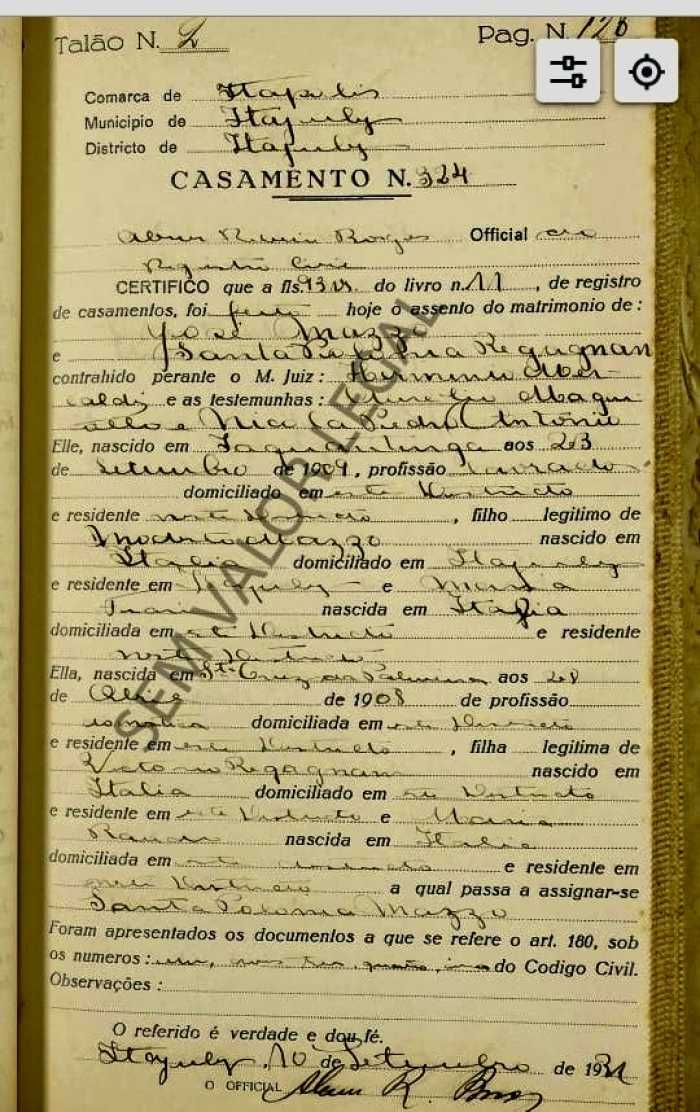 Talão N. 2 Pag. N. 128
Comarca de Itapolis
Municipio de Itajuby
Districto de Itajuby
CASAMENTO N. 324
Borges Official
Registro Civil
CERTIFICO que a fls. 93 vs. do livro n. 11, de registro
de casamentos, foi feito hoje o assento do matrimonio de:
José Mazzo
e Santa Palonia Regagnan
contrahido perante o M. Juiz:
e as testemunhas:
e Pedro Antônio
Elle, nascido em Taquaritinga aos 23
de Setembro de 1909, profissão lavrador
domiciliado em este districto
e residente neste districto, filho legitimo de
Modesto Mazzo nascido em
Italia domiciliado em Itajuby
e residente em Itajuby e Maria
nascida em Italia
domiciliada em este districto e residente
neste districto
Ella, nascida em Sta. Cruz das Palmeiras aos 28
de Abril de 1908 de profissão
domestica domiciliada em este districto
e residente em este districto, filha legitima de
Regagnan nascido em
Italia domiciliado em este districto
e residente em este districto e Maria
nascida em Italia
domiciliada em este districto e residente em
neste districto a qual passa a assignar-se
Santa Polonia Mazzo
Foram apresentados os documentos a que se refere o art. 180, sob
os numeros: um, dois, tres, quatro, do Codigo Civil.
Observações:
O referido é verdade e dou fé.
Itajuby, 10 de Setembro de 1931
O OFFICIAL
SEM VALOR LEGAL